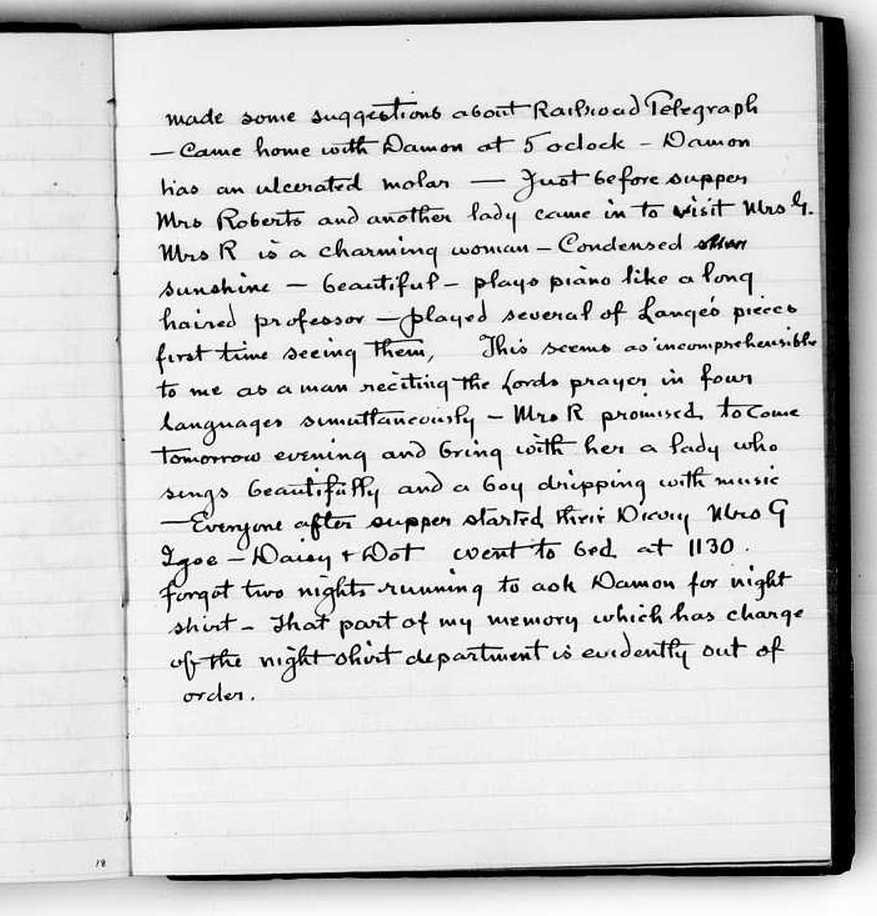 made some suggestions about Railroad Telegraph
— Came home with Damon at 5 oclock – Damon
has an ulcerated molar — Just before supper
Mrs Roberts and another lady came in to visit Mrs G.
Mrs R is a charming woman – Condensed
sunshine — beautiful – plays piano like a long
haired professor — played several of Langes pieces
first time seeing them, This seems as incomprehensible
to me as a man reciting the Lords prayer in four
languages simultaneously – Mrs R promised to come
tomorrow evening and bring with her a lady who
sings beautifully and a boy dripping with music
— Everyone after supper started their Diary Mrs G
Igoe – Daisy + Dot went to bed at 1130.
forgot two nights running to ask Damon for night
shirt – That part of my memory which has charge
of the night shirt department is evidently out of
order.
18